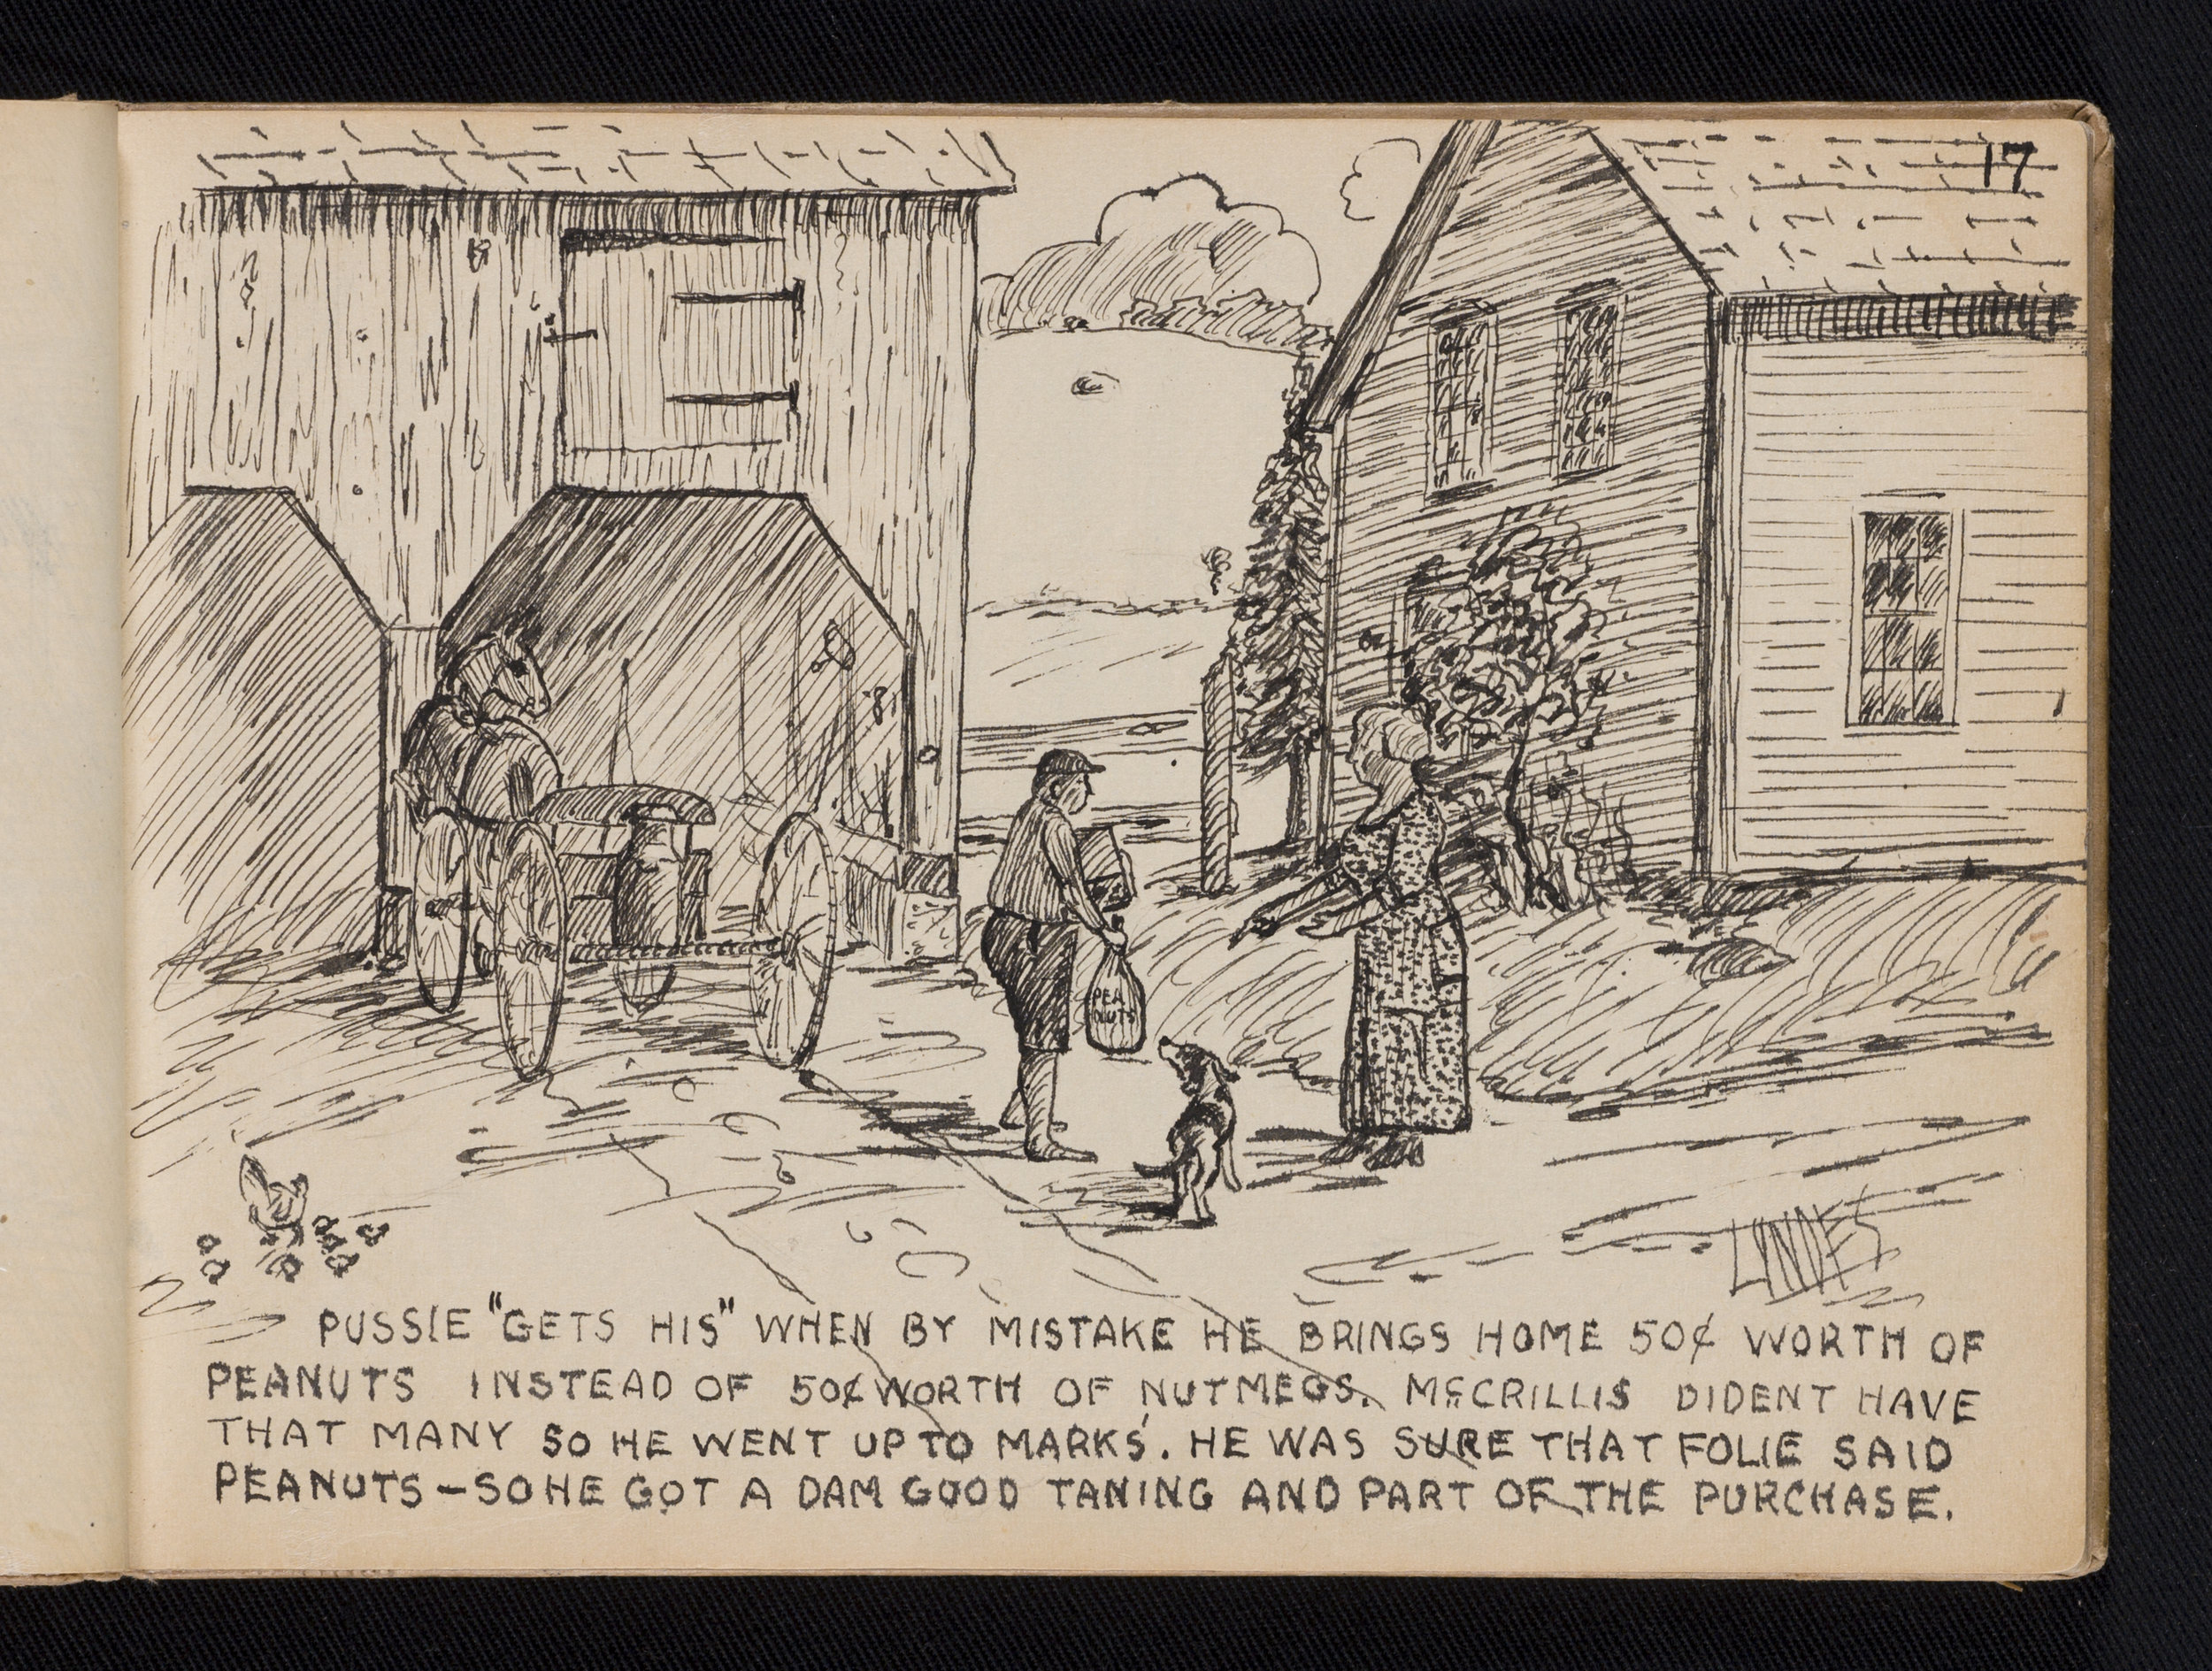 17
PEA
NUTS
LYNDES
PUSSIE "GETS HIS" WHEN BY MISTAKE HE BRINGS HOME 50¢ WORTH OF
PEANUTS INSTEAD OF 50¢ WORTH OF NUTMEGS. McCRILLIS DIDENT HAVE
THAT MANY SO HE WENT UP TO MARKS'. HE WAS SURE THAT FOLIE SAID
PEANUTS—SO HE GOT A DAM GOOD TANING AND PART OF THE PURCHASE.